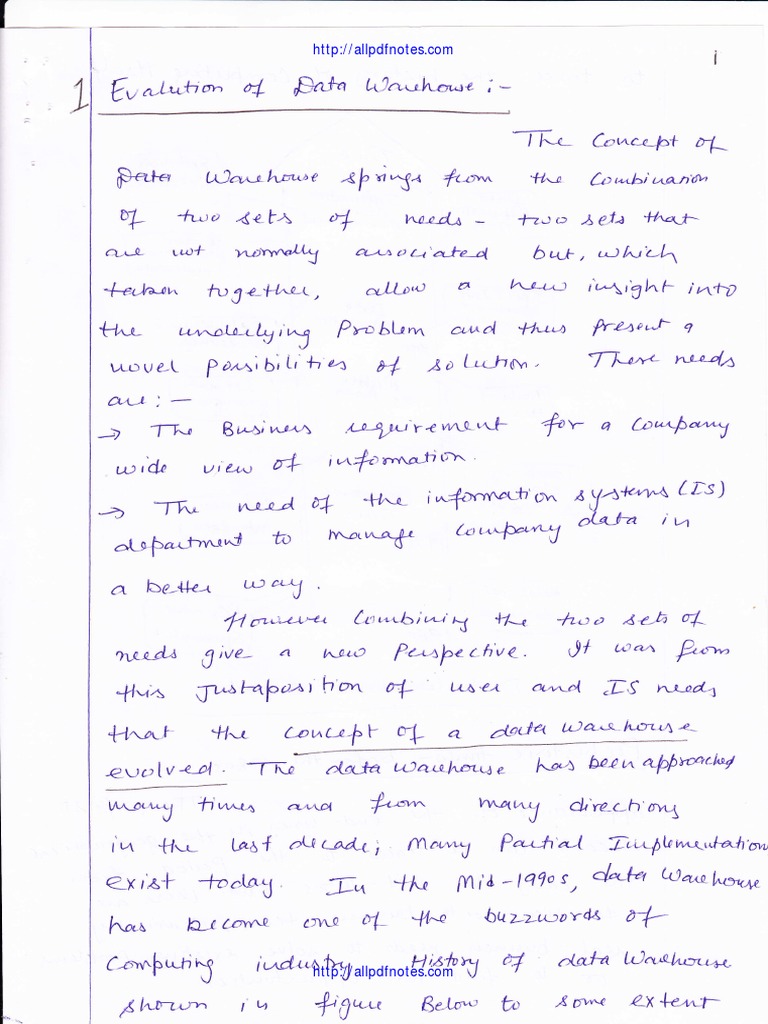 http://allpdfnotes.com
i
1 Evalution of Data Warehouse :-
The Concept of
Data Warehouse springs from the Combination
of two sets of needs - two sets that
are not normally associated but, which
taken together, allow a new insight into
the underlying Problem and thus Present a
novel possibilities of solution. These needs
are : -
→ The Business requirement for a Company
wide view of information.
→ The need of the information systems (IS)
department to manage company data in
a better way.
However Combining the two sets of
needs give a new Perspective. It was from
this Justaposition of user and IS needs
that the concept of a data warehouse
evolved. The data warehouse has been approached
many times and from many directions
in the last decade; Many Partial Implementation
exist today. In the Mid-1990s, data Warehouse
has become one of the buzzwords of
Computing industry. History of data Warehouse
http://allpdfnotes.com
shown in figure Below to some extent